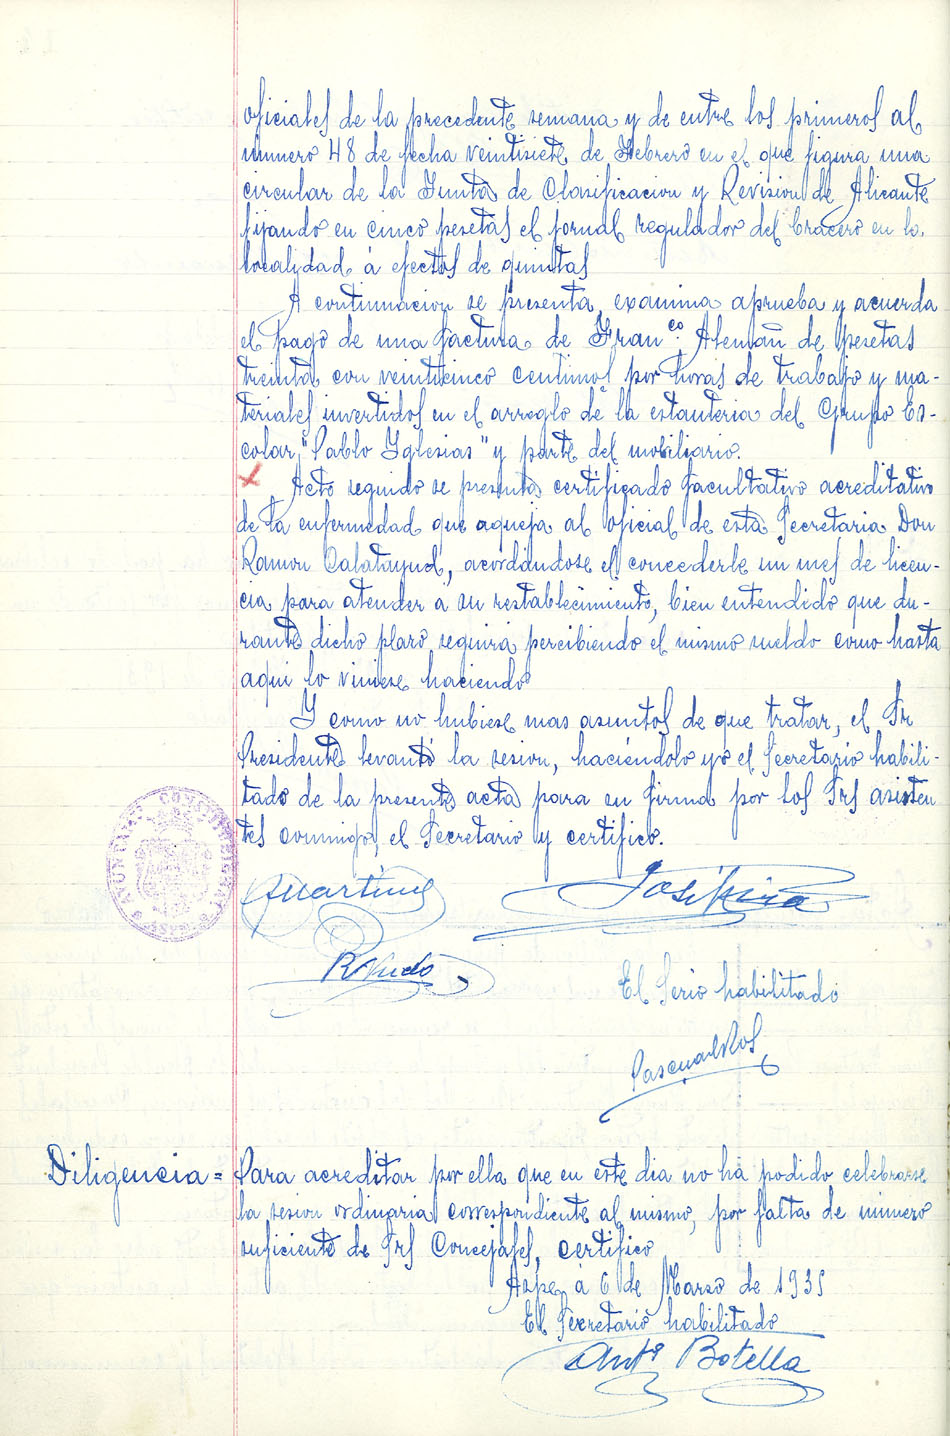 oficiales de la precedente semana y de entre los primeros al
numero 48 de fecha veintisiete de Febrero en el que figura una
circular de la Junta de Clasificacion y Revision de Alicante
fijando en cinco pesetas el jornal regulador del bracero en la
localidad á efectos de quintas
A continuacion se presenta, examina aprueba y acuerda
el pago de una factura de Franco. Alemañ de pesetas
treinta con veinticinco centimos por horas de trabajo y ma-
teriales invertidos en el arreglo de la estanteria del Grupo Es-
colar "Pablo Iglesias" y parte del mobiliario.
Acto seguido se presenta certificado facultativo acreditativo
de la enfermedad que aqueja al oficial de esta Secretaria Don
Ramon Calatayud, acordándose el concederle un mes de licen-
cia para atender a su restablecimiento, bien entendido que du-
rante dicho plazo seguirá percibiendo el mismo sueldo como hasta
aqui lo viniese haciendo
Y como no hubiese mas asuntos de que tratar, el Sr
Presidente levantó la sesion, haciéndolo yo el Secretario habili-
tado de la presente acta para su firma por los Srs asisten
tes conmigo, el Secretario y certifico.
AYUNTAMTO CONSTITUCIONAL
AMartinez
El Serio habilitado
Pascual Ros
Diligencia = Para acreditar por ella que en este dia no ha podido celebrarse
la sesion ordinaria correspondiente al mismo, por falta de número
suficiente de Srs Concejales, certifico
Aspe á 6 de Marzo de 1935
El Secretario habilitado
Anto Botella